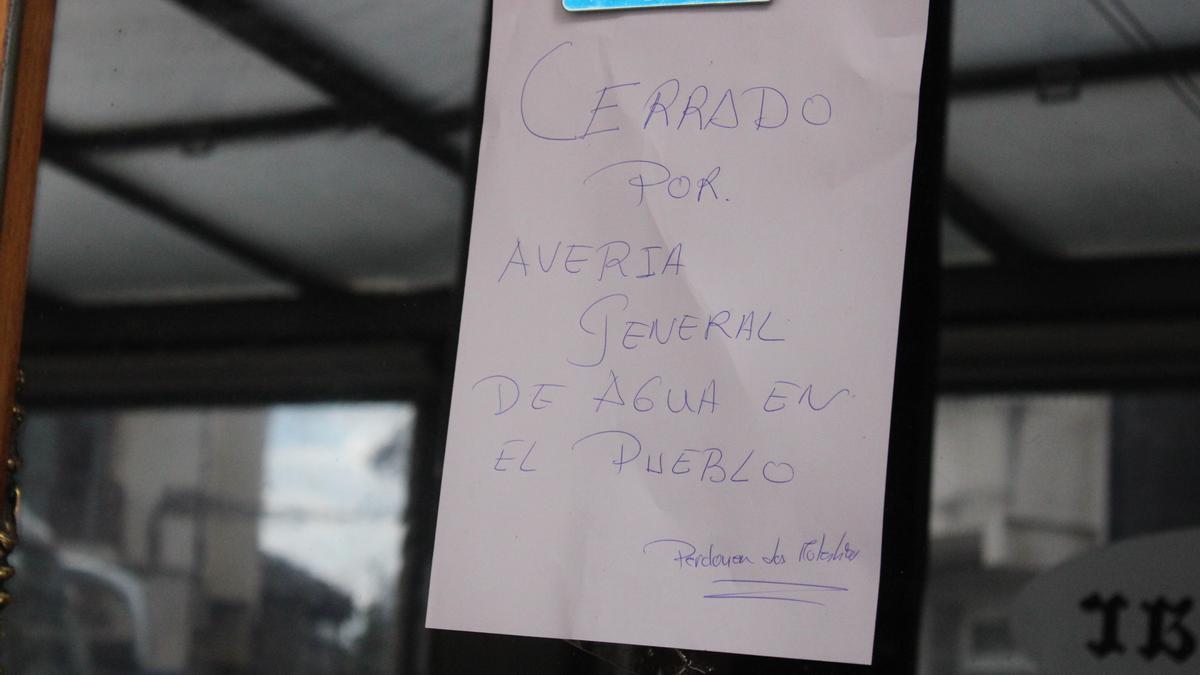 CERRADO
POR.
AVERIA
GENERAL
DE AGUA EN
EL PUEBLO
Perdonen las Molestias